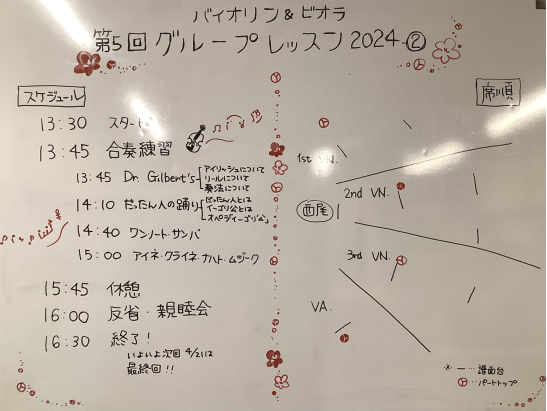 バイオリン & ビオラ
第5回 グループレッスン 2024-②
スケジュール
13:30 スタート
13:45 合奏練習
13:45 Dr. Gilbert's
アイリッシュについて
リールについて
奏法について
14:10 だったん人の踊り
だったん人とは
イーゴリ公とは
オペラ「イーゴリ公」
14:40 ワンノートサンバ
15:00 アイネ・クライネ・ナハト・ムジーク
15:45 休憩
16:00 反省・親睦会
16:30 終了!
いよいよ次回 4/21は
最終回!!
席順
1st VN.
2nd VN.
西尾
3rd VN.
VA.
※ ー… 譜面台
… パートトップ